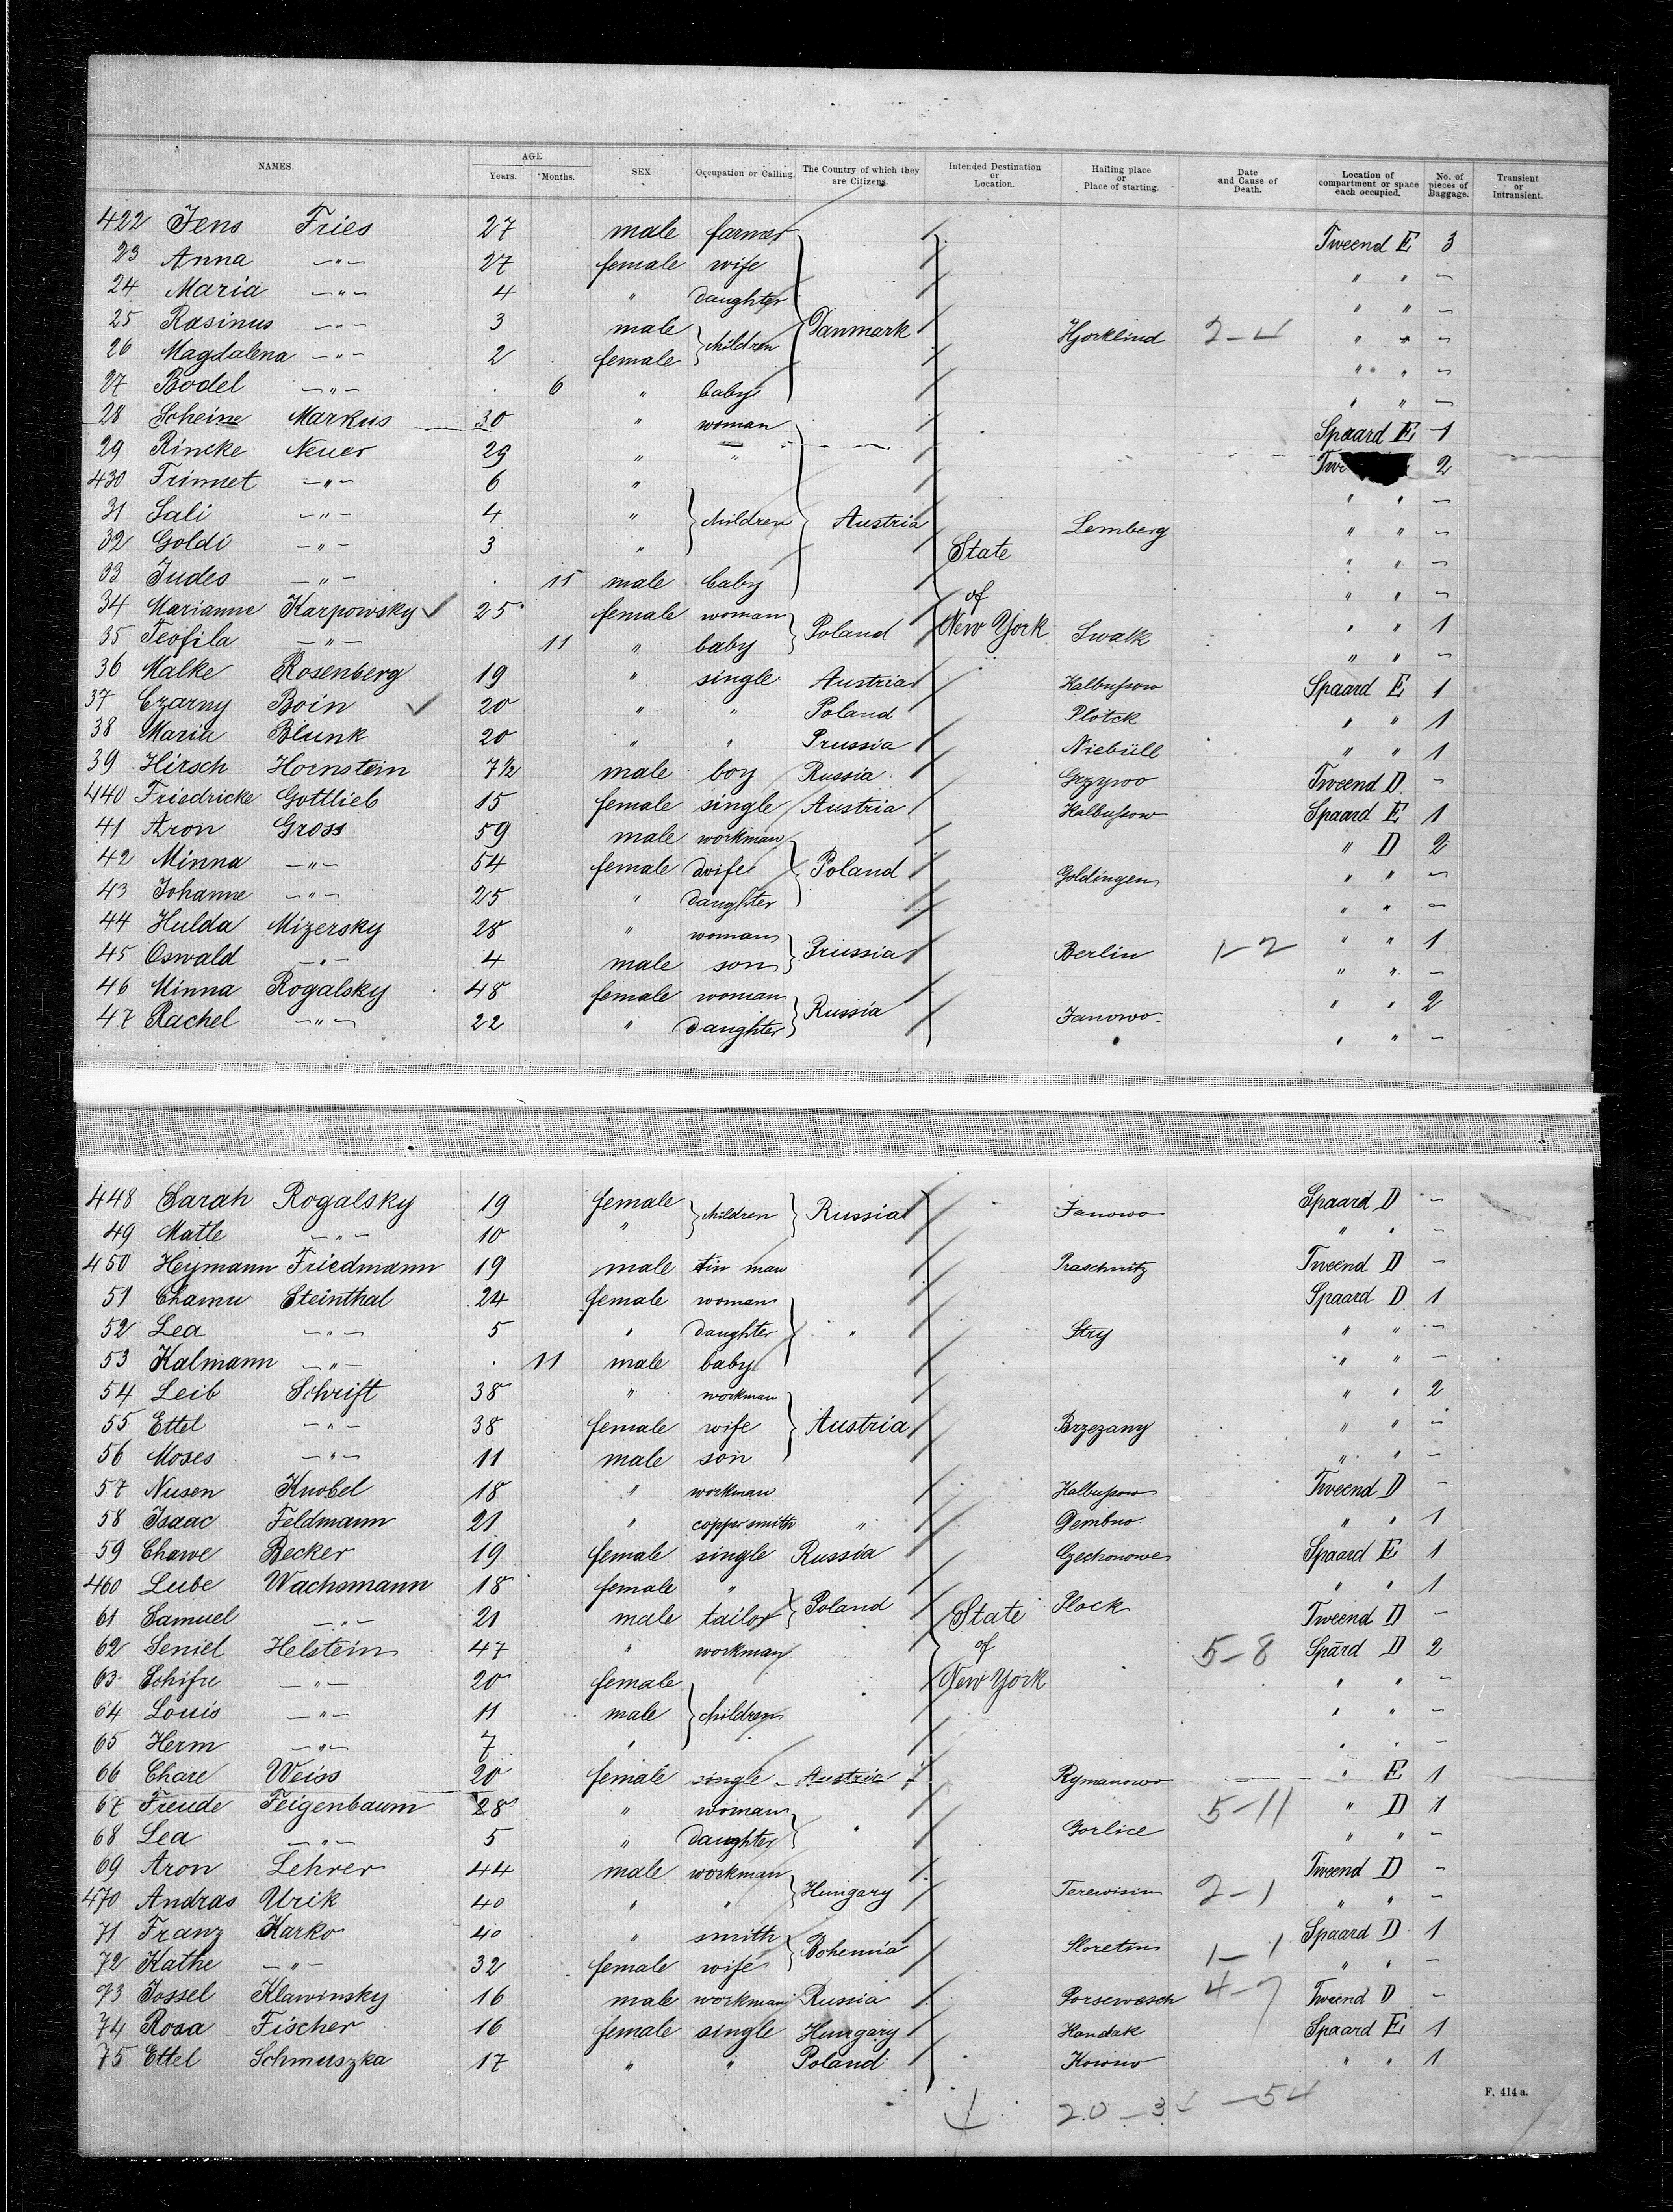 NAMES. AGE Years. Months. SEX Occupation or Calling. The Country of which they are Citizens. Intended Destination or Location. Hailing place or Place of starting. Date and Cause of Death. Location of compartment or space each occupied. No. of pieces of Baggage. Transient or Intransient.
422 Jens Fries 27 male farmer Tweend E 3
23 Anna —"— 27 female wife " " —
24 Maria —"— 4 " daughter " " —
25 Rasinus —"— 3 male children Danmark Hjorklind 2-4 " " —
26 Magdalena —"— 2 female " " —
27 Bodel —"— 6 " baby " " —
28 Scheine Markus 30 " woman Spaard E 1
29 Rincke Neuer 29 " " 2
430 Trinnet —"— 6 " " " —
31 Sali —"— 4 " children Austria Lemberg " " —
32 Goldi —"— 3 " State " " —
33 Judes —"— 11 male baby of " " —
34 Marianne Karpowsky ✓ 25 female woman Poland New York Swalk " " 1
35 Teofila —"— 11 " baby " " —
36 Malke Rosenberg 19 " single Austria Kalbussow Spaard E 1
37 Czarny Boin ✓ 20 " " Poland Plotck " " 1
38 Maria Blunk 20 " " Prussia Niebüll " " 1
39 Hirsch Hornstein 7½ male boy Russia Grzywo Tweend D —
440 Friedricke Gottlieb 15 female single Austria Kalbussow Spaard E 1
41 Aron Gross 59 male workman " D 2
42 Minna —"— 54 female wife Poland Goldingen " " —
43 Johanne —"— 25 " daughter " " —
44 Hulda Mizersky 28 " woman " " 1
45 Oswald —"— 4 male son Prussia Berlin 1-2 " " —
46 Minna Rogalsky 48 female woman " " 2
47 Rachel —"— 22 " daughter Russia Janowo. " " —
448 Sarah Rogalsky 19 female children Russia Janowo Spaard D —
49 Matle —"— 10 " " " —
450 Heymann Friedmann 19 male tin man Praschnitz Tweend D —
51 Chamu Steinthal 24 female woman Spaard D 1
52 Lea —"— 5 " daughter " Stry " " —
53 Kalmann —"— 11 male baby " " —
54 Leib Schrift 38 " workman " " 2
55 Ettel —"— 38 female wife Austria Brzezany " " —
56 Moses —"— 11 male son " " —
57 Nusen Knobel 18 " workman Kalbussow Tweend D —
58 Isaac Feldmann 21 " copper smith " Gembno " " 1
59 Chawe Becker 19 female single Russia Czechonowe Spaard E 1
460 Lube Wachsmann 18 female " " " 1
61 Samuel —"— 21 male tailor Poland State Plock Tweend D —
62 Seniel Helstein 47 " workman of 5-8 Spard D 2
63 Schifre —"— 20 female New York " " —
64 Louis —"— 11 male children " " —
65 Herm —"— 7 " " " —
66 Chare Weiss 20 female single Austria Rymanowo " E 1
67 Freude Feigenbaum 28 " woman 5-11 " D 1
68 Lea —"— 5 " daughter " Gorlice " " —
69 Aron Lehrer 44 male workman Tweend D —
470 Andras Urik 40 " " Hungary Terewisin 2-1 " " —
71 Franz Karko 40 " smith Spaard D 1
72 Kathe —"— 32 female wife Bohemia 1-1 " " —
73 Jossel Klawinsky 16 male workman Russia Porsewesch 4-7 Tweend D —
74 Rosa Fischer 16 female single Hungary Handak Spaard E 1
75 Ettel Schmuszka 17 " " Poland Kowno " " 1
F. 414 a.
20-34-54